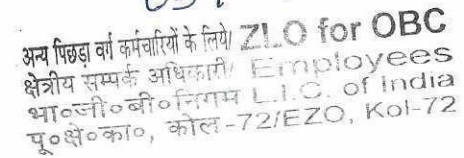 अन्य पिछड़ा वर्ग कर्मचारियों के लिये/ ZLO for OBC
क्षेत्रीय सम्पर्क अधिकारी/ Employees
भा०जी०बी०निगम L.I.C. of India
पू०क्षे०का०, कोल-72/EZO, Kol-72